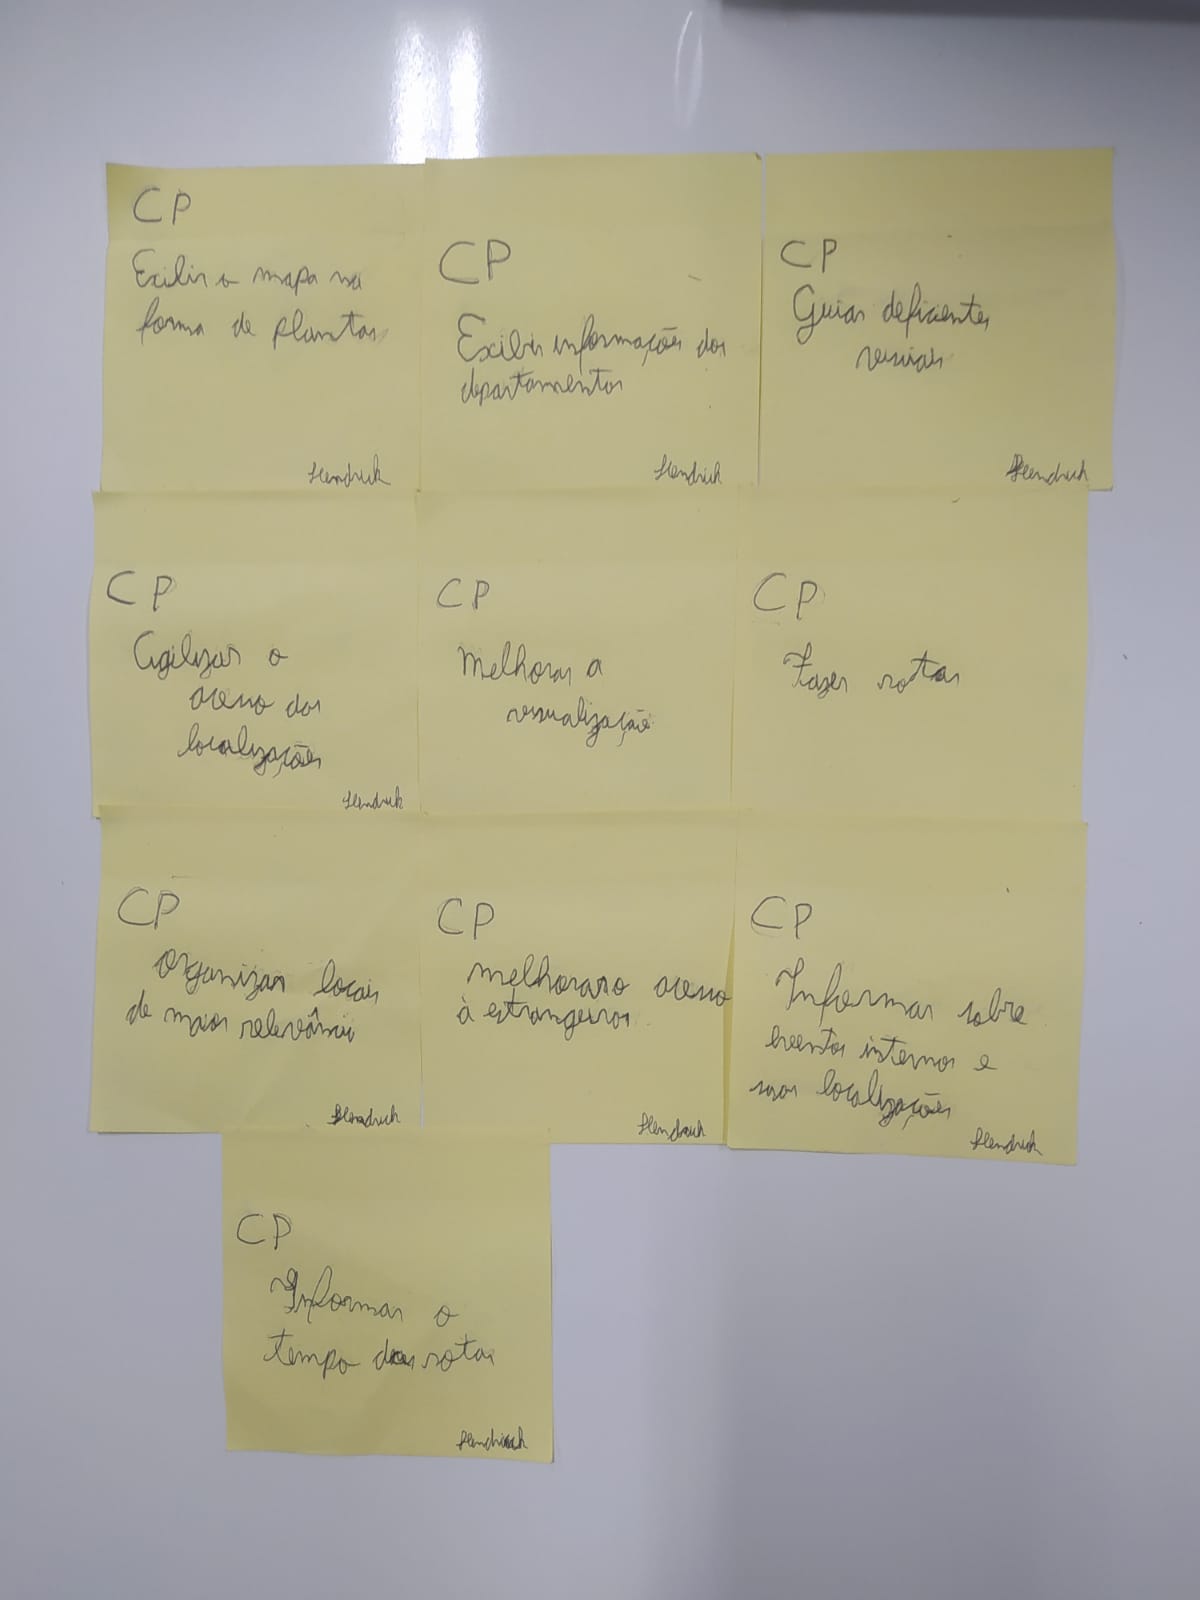 CP
Exibir o mapa na
forma de plantas
Hendrick
CP
Exibir informações dos
departamentos
Hendrick
CP
Guiar deficientes
visuais
Hendrick
CP
Agilizar o
acesso das
localizações
Hendrick
CP
Melhorar a
visualização
CP
Fazer rotas
CP
organizar locais
de maior relevância
Hendrick
CP
melhorar o acesso
à estrangeiros
Hendrick
CP
Informar sobre
eventos internos e
suas localizações
Hendrick
CP
Informar o
tempo das rotas
Hendrick